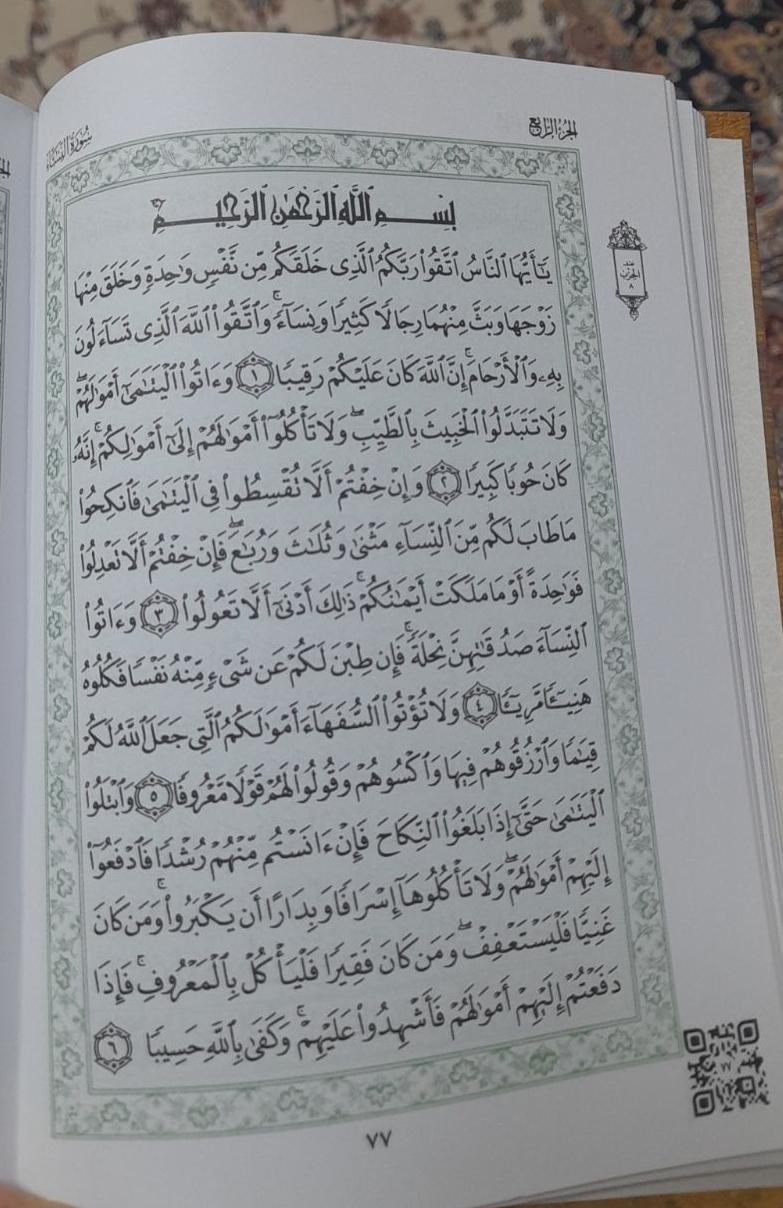 سُورَةُ النِّسَاءِ
الجُزْءُ الرَّابِعُ
بِسْمِ ٱللَّهِ ٱلرَّحْمَٰنِ ٱلرَّحِيمِ
يَٰٓأَيُّهَا ٱلنَّاسُ ٱتَّقُوا۟ رَبَّكُمُ ٱلَّذِى خَلَقَكُم مِّن نَّفْسٍ وَٰحِدَةٍ وَخَلَقَ مِنْهَا
زَوْجَهَا وَبَثَّ مِنْهُمَا رِجَالًا كَثِيرًا وَنِسَآءً ۚ وَٱتَّقُوا۟ ٱللَّهَ ٱلَّذِى تَسَآءَلُونَ
بِهِۦ وَٱلْأَرْحَامَ ۚ إِنَّ ٱللَّهَ كَانَ عَلَيْكُمْ رَقِيبًا ١ وَءَاتُوا۟ ٱلْيَتَٰمَىٰٓ أَمْوَٰلَهُمْ ۖ
وَلَا تَتَبَدَّلُوا۟ ٱلْخَبِيثَ بِٱلطَّيِّبِ ۖ وَلَا تَأْكُلُوٓا۟ أَمْوَٰلَهُمْ إِلَىٰٓ أَمْوَٰلِكُمْ ۚ إِنَّهُۥ
كَانَ حُوبًا كَبِيرًا ٢ وَإِنْ خِفْتُمْ أَلَّا تُقْسِطُوا۟ فِى ٱلْيَتَٰمَىٰ فَٱنكِحُوا۟
مَا طَابَ لَكُم مِّنَ ٱلنِّسَآءِ مَثْنَىٰ وَثُلَٰثَ وَرُبَٰعَ ۖ فَإِنْ خِفْتُمْ أَلَّا تَعْدِلُوا۟
فَوَٰحِدَةً أَوْ مَا مَلَكَتْ أَيْمَٰنُكُمْ ۚ ذَٰلِكَ أَدْنَىٰٓ أَلَّا تَعُولُوا۟ ٣ وَءَاتُوا۟
ٱلنِّسَآءَ صَدُقَٰتِهِنَّ نِحْلَةً ۚ فَإِن طِبْنَ لَكُمْ عَن شَىْءٍ مِّنْهُ نَفْسًا فَكُلُوهُ
هَنِيٓـًٔا مَّرِيٓـًٔا ٤ وَلَا تُؤْتُوا۟ ٱلسُّفَهَآءَ أَمْوَٰلَكُمُ ٱلَّتِى جَعَلَ ٱللَّهُ لَكُمْ
قِيَٰمًا وَٱرْزُقُوهُمْ فِيهَا وَٱكْسُوهُمْ وَقُولُوا۟ لَهُمْ قَوْلًا مَّعْرُوفًا ٥ وَٱبْتَلُوا۟
ٱلْيَتَٰمَىٰ حَتَّىٰٓ إِذَا بَلَغُوا۟ ٱلنِّكَاحَ فَإِنْ ءَانَسْتُم مِّنْهُمْ رُشْدًا فَٱدْفَعُوٓا۟
إِلَيْهِمْ أَمْوَٰلَهُمْ ۖ وَلَا تَأْكُلُوهَآ إِسْرَافًا وَبِدَارًا أَن يَكْبَرُوا۟ ۚ وَمَن كَانَ
غَنِيًّا فَلْيَسْتَعْفِفْ ۖ وَمَن كَانَ فَقِيرًا فَلْيَأْكُلْ بِٱلْمَعْرُوفِ ۚ فَإِذَا
دَفَعْتُمْ إِلَيْهِمْ أَمْوَٰلَهُمْ فَأَشْهِدُوا۟ عَلَيْهِمْ ۚ وَكَفَىٰ بِٱللَّهِ حَسِيبًا ٦
الحِزْب
٨
٧٧